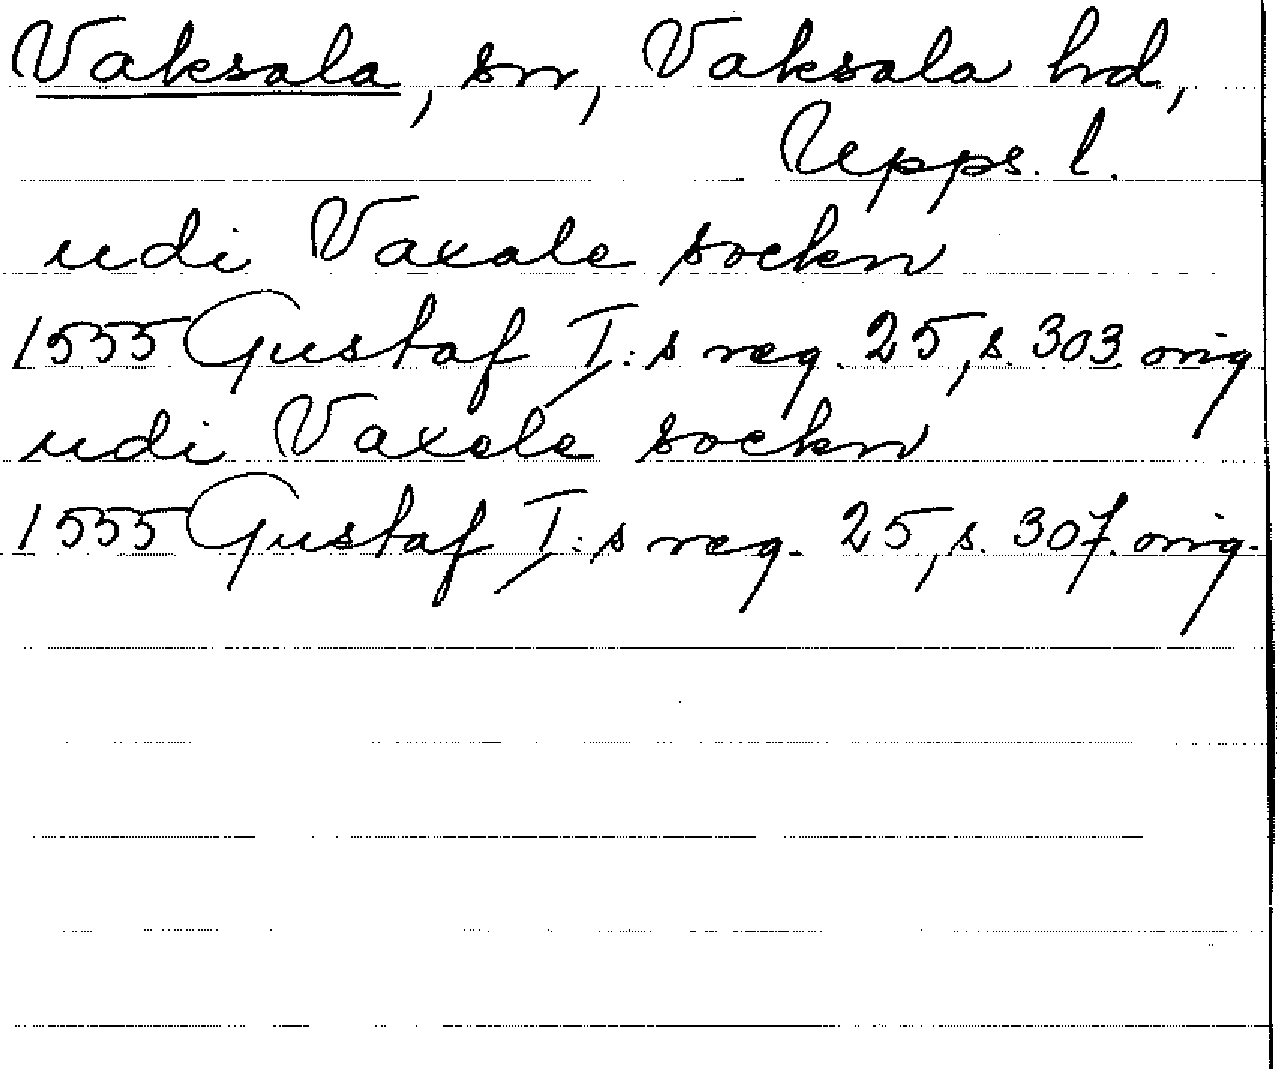 Vaksala, sn, Vaksala hd,
Upps. l.
udi Vaxale sockn
1555 Gustaf I:s reg. 25, s. 303. orig
udi Vaxele sockn
1555 Gustaf I:s reg. 25, s. 307. orig.